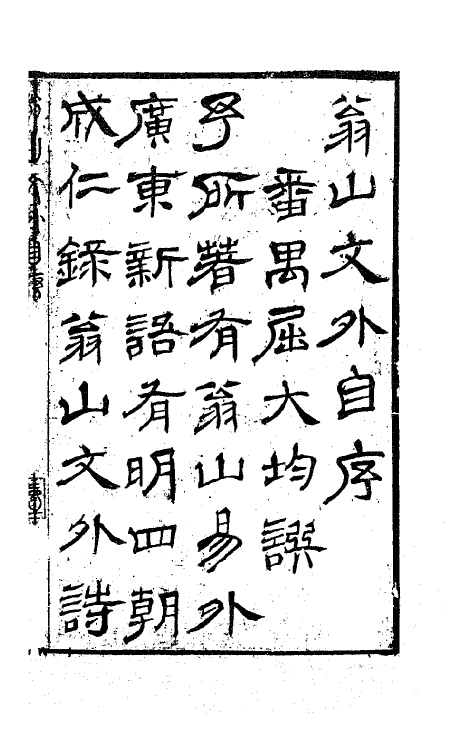 翁山文外自序
番禺屈大均譔
予所著有翁山易外
廣東新語有明四朝
成仁錄翁山文外詩